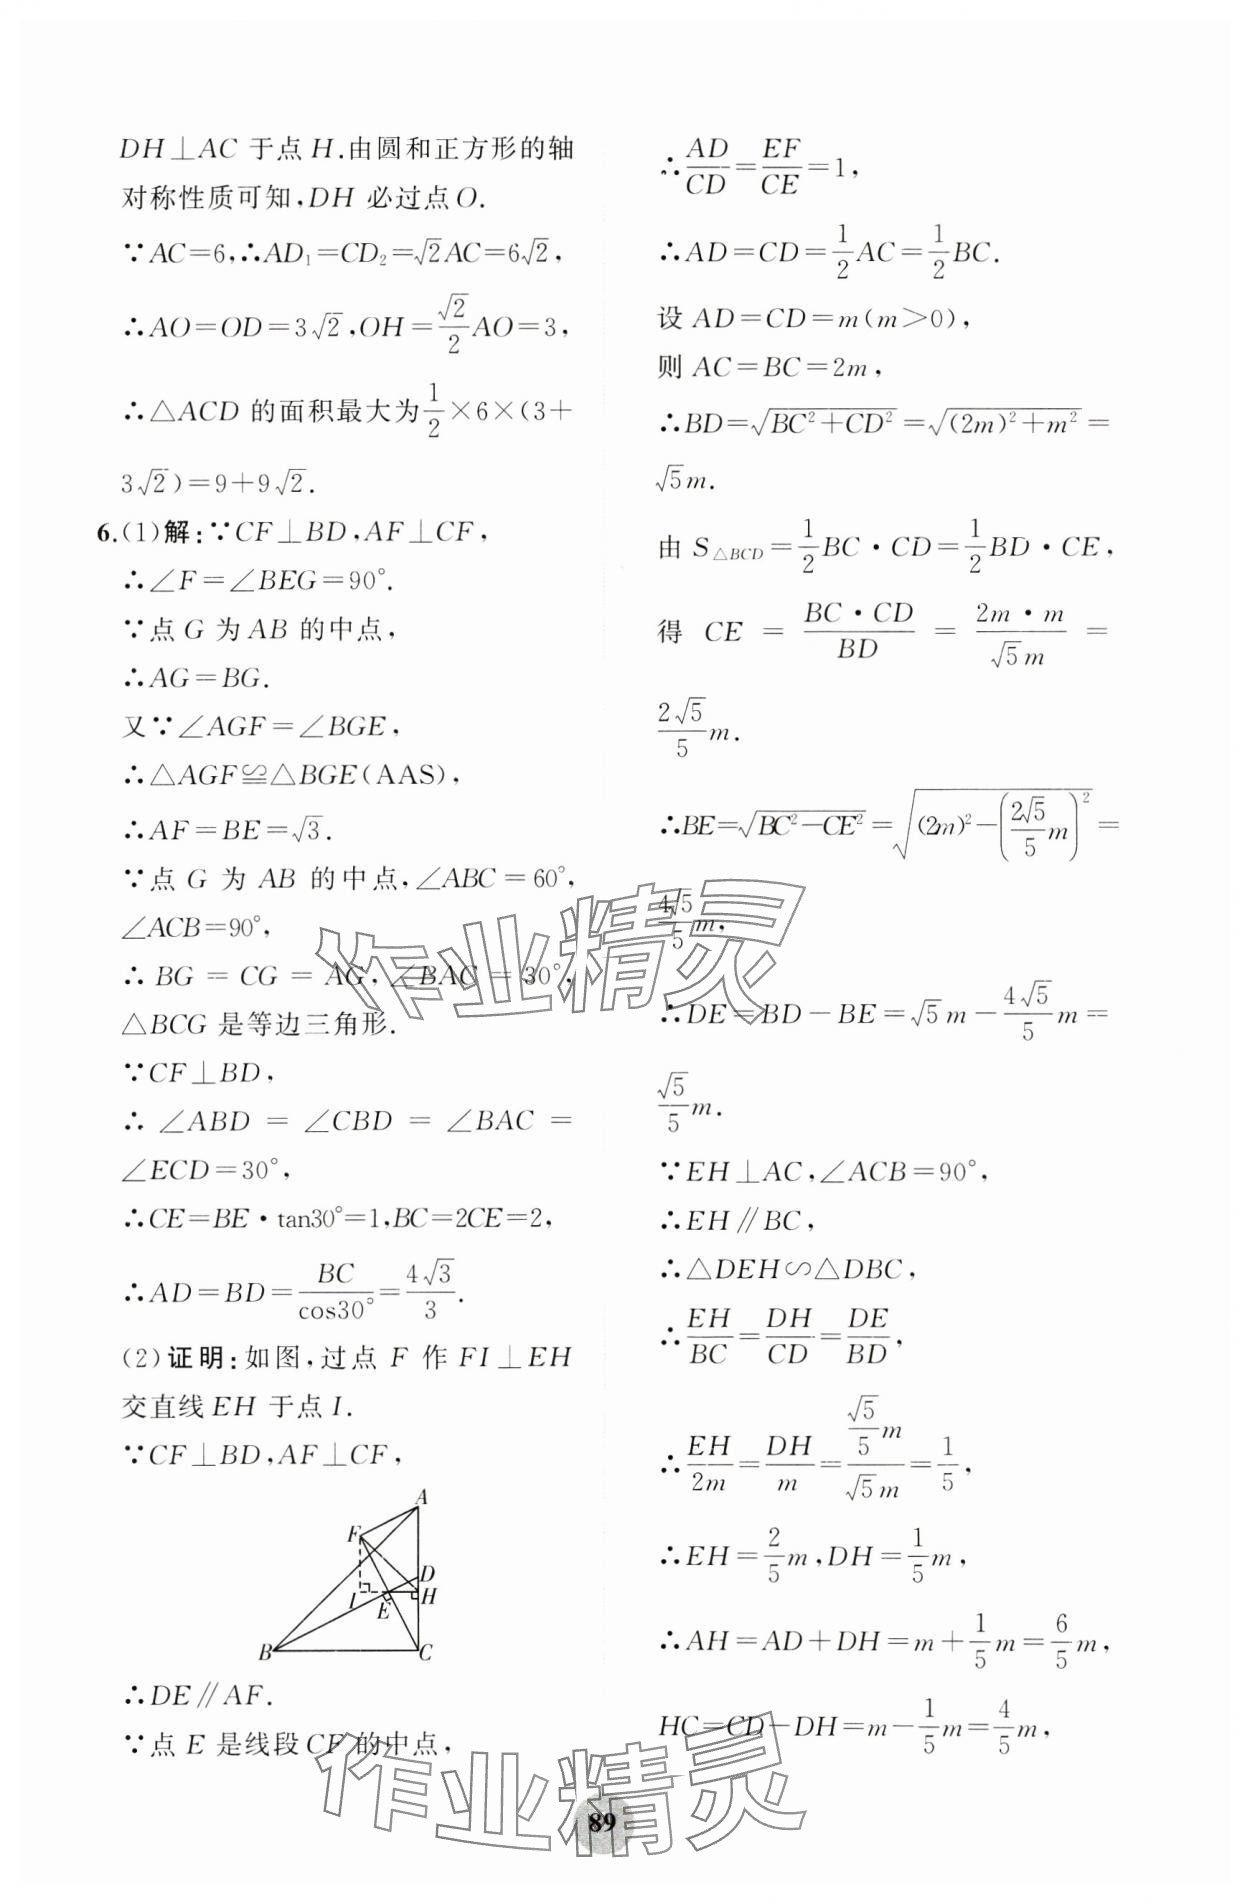 DH⊥AC 于点 H.由圆和正方形的轴
对称性质可知,DH 必过点 O.
∵AC=6,∴AD₁=CD₂=√2AC=6√2,
∴AO=OD=3√2,OH=(√2/2)AO=3,
∴△ACD 的面积最大为1/2×6×(3+
3√2)=9+9√2.
6.(1)解:∵CF⊥BD,AF⊥CF,
∴∠F=∠BEG=90°.
∵点 G 为 AB 的中点,
∴AG=BG.
又∵∠AGF=∠BGE,
∴△AGF≌△BGE(AAS),
∴AF=BE=√3.
∵点 G 为 AB 的中点,∠ABC=60°,
∠ACB=90°,
∴BG=CG=AG,∠BAC=30°,
△BCG 是等边三角形.
∵CF⊥BD,
∴∠ABD=∠CBD=∠BAC=
∠ECD=30°,
∴CE=BE·tan30°=1,BC=2CE=2,
∴AD=BD=BC/cos30°=4√3/3.
(2)证明:如图,过点 F 作 FI⊥EH
交直线 EH 于点 I.
∵CF⊥BD,AF⊥CF,
A
F
D
I
E
H
B
C
∴DE∥AF.
∵点 E 是线段CF 的中点,
∴AD/CD=EF/CE=1,
∴AD=CD=1/2AC=1/2BC.
设 AD=CD=m(m>0),
则 AC=BC=2m,
∴BD=√(BC²+CD²)=√((2m)²+m²)=
√5m.
由 S△BCD=1/2BC·CD=1/2BD·CE,
得 CE=(BC·CD)/BD=(2m·m)/(√5m)=
(2√5/5)m.
∴BE=√(BC²-CE²)=√((2m)²-((2√5/5)m)²)=
(4√5/5)m,
∴DE=BD-BE=√5m-(4√5/5)m=
(√5/5)m.
∵EH⊥AC,∠ACB=90°,
∴EH∥BC,
∴△DEH∽△DBC,
∴EH/BC=DH/CD=DE/BD,
∴EH/2m=DH/m=((√5/5)m)/(√5m)=1/5,
∴EH=2/5m,DH=1/5m,
∴AH=AD+DH=m+1/5m=6/5m,
HC=CD-DH=m-1/5m=4/5m,
89
作业精灵
作业精灵